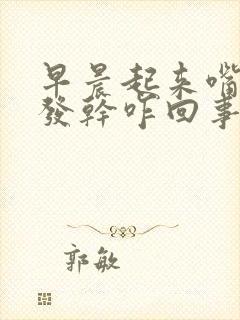 早晨起来嘴
發幹咋回事
郭敏